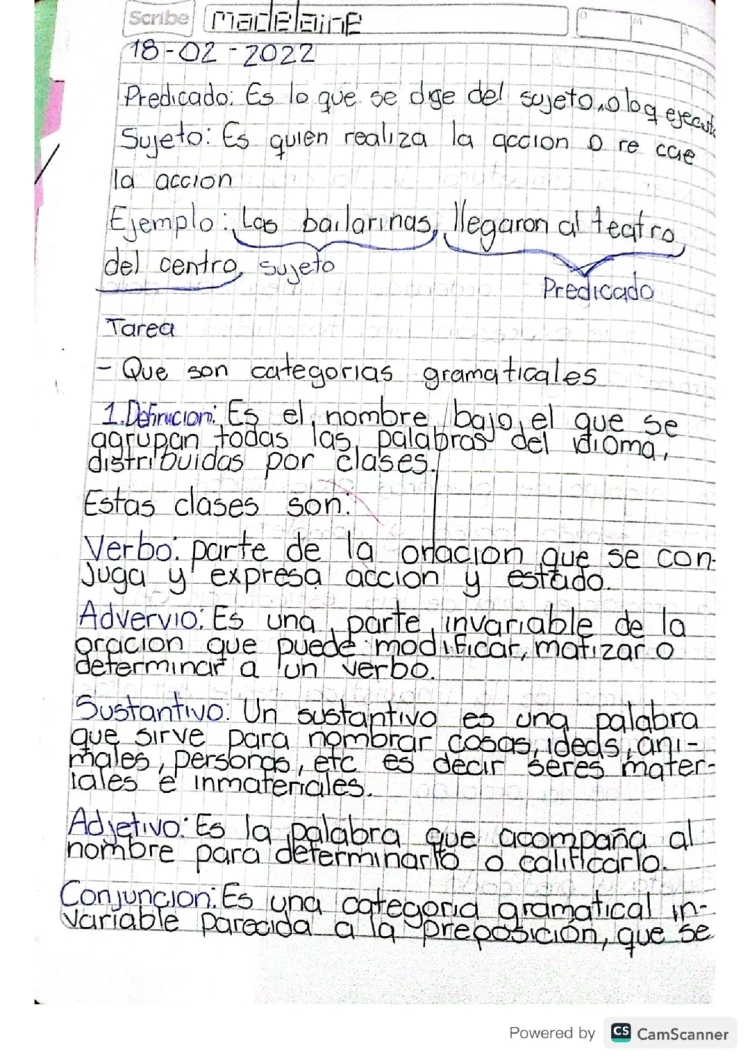 Scribe madelaine
18-02-2022
Predicado: Es lo que se dige del sujeto, o loq ejecuta
Sujeto: Es quien realiza la accion o re cae
la accion
Ejemplo: Las bailarinas, llegaron al teatro
del centro, sujeto
Predicado
Tarea
- Que son categorias gramaticales
1. Definicion: Es el nombre bajo el que se
agrupan todas las palabras del idioma,
distribuidas por clases.
Estas clases son:
Verbo: parte de la oracion que se con-
juga y expresa accion y estado.
Advervio: Es una parte invariable de la
oracion que puede modificar, matizar o
determinar a un verbo.
Sustantivo: Un sustantivo es una palabra
que sirve para nombrar cosas, ideas, ani-
males, personas, etc es decir seres mater-
iales e inmateriales.
Adjetivo: Es la palabra que acompaña al
nombre para determinarlo o calificarlo.
Conjuncion: Es una categoria gramatical in-
variable parecida a la preposición, que se
Powered by CS CamScanner